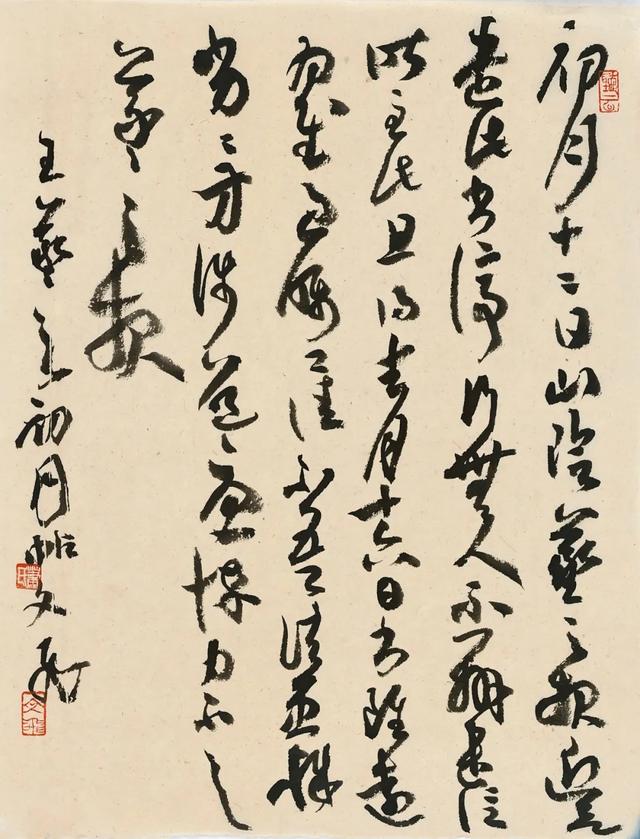 初月十二日山陰羲之報近欲
遣此書停行無人不辦遣信
昨至此且得去月十六日書雖遠
為慰過囑卿佳不吾諸患殊
劣〻方涉道憂悴力不具
羲之報
王羲之初月帖文飛